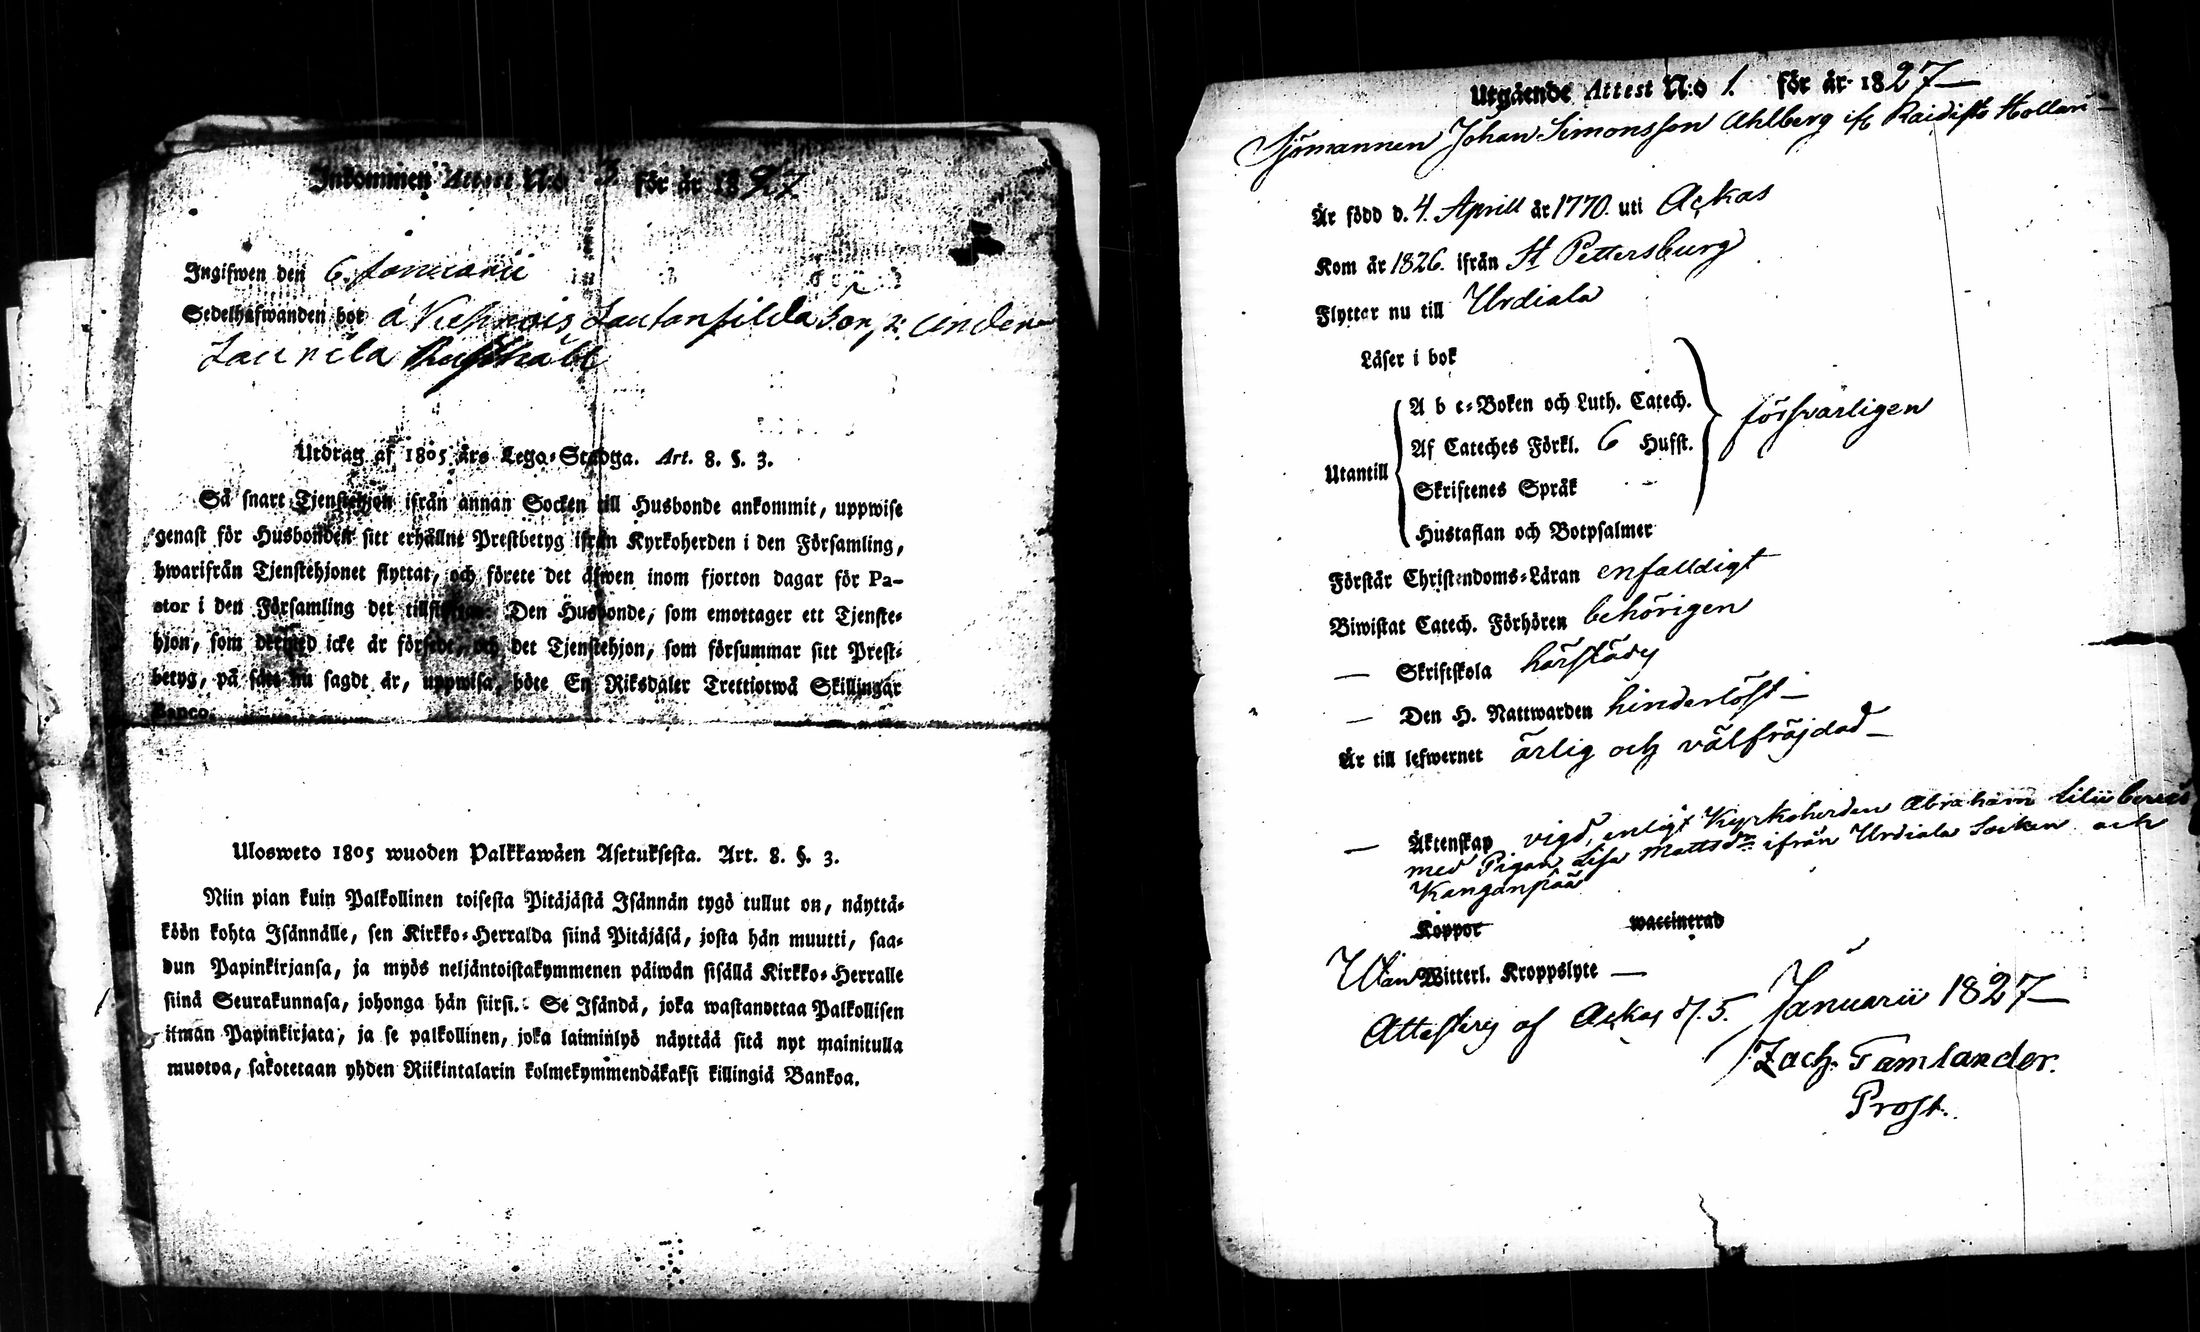 Inkommen Attest N:o 3 för år 1827
Ingifwen den 6 Januarii
Sedelhafwanden bor å under
Laurila
Utdrag af 1805 års Lego-Stadga. Art. 8. §. 3.
Så snart Tjenstehjon ifrån annan Socken till Husbonde ankommit, uppwise
genast för Husbonden sitt erhållne Prestbetyg ifrån Kyrkoherden i den Församling,
hwarifrån Tjenstehjonet flyttat, och förete det äfwen inom fjorton dagar för Pa-
stor i den Församling det Den Husbonde, som emottager ett Tjenste-
hjon, som dermed icke är försedt, och det Tjenstehjon, som försummar sitt Prest-
betyg, på sätt nu sagdt är, uppwisa, böte En Riksdaler Trettiotwå Skillingar
Banco.
Ulosweto 1805 wuoden Palkkawäen Asetuksesta. Art. 8. §. 3.
Niin pian kuin Palkollinen toisesta Pitäjästä Isännän tygö tullut on, näyttä-
köön kohta Isännälle, sen Kirkko-Herralda siinä Pitäjäsä, josta hän muutti, saa-
dun Papinkirjansa, ja myös neljäntoistakymmenen päiwän sisällä Kirkko-Herralle
siinä Seurakunnasa, johonga hän siirsi. Se Isändä, joka wastanottaa Palkollisen
ilman Papinkirjata, ja se palkollinen, joka laiminlyö näyttää sitä nyt mainitulla
muotoa, sakotetaan yhden Riikintalarin kolmekymmendäkaksi killingiä Bankoa.
Utgående Attest N:o 1. för år 1827
Sjömannen Johan Simonsson Ahlberg
Är född d. 4. Aprill år 1770. uti Ackas
Kom år 1826. ifrån St Pettersburg
Flyttar nu till Urdiala
Läser i bok
A b c-Boken och Luth. Catech.
försvarligen
Af Cateches Förkl. 6 Hufst.
Utantill
Skriftenes Språk
Hustaflan och Botpsalmer
Förstår Christendoms-Läran enfalldigt
Biwistat Catech. Förhören behörigen
— Skriftskola härstädes
— Den H. Nattwarden hinderlöst —
Är till lefwernet ärlig och välfräjdad —
— Äktenskap vigd, enligt Kyrkoherden Abraham
med Pigan Lisa Mattsdr ifrån Urdiala Socken och
Kanganpää
Koppor waccinerad
Utan Witterl. Kroppslyte —
Attesteras af Ackas d. 5. Januarii 1827
Zach. Tamlander.
Prost.